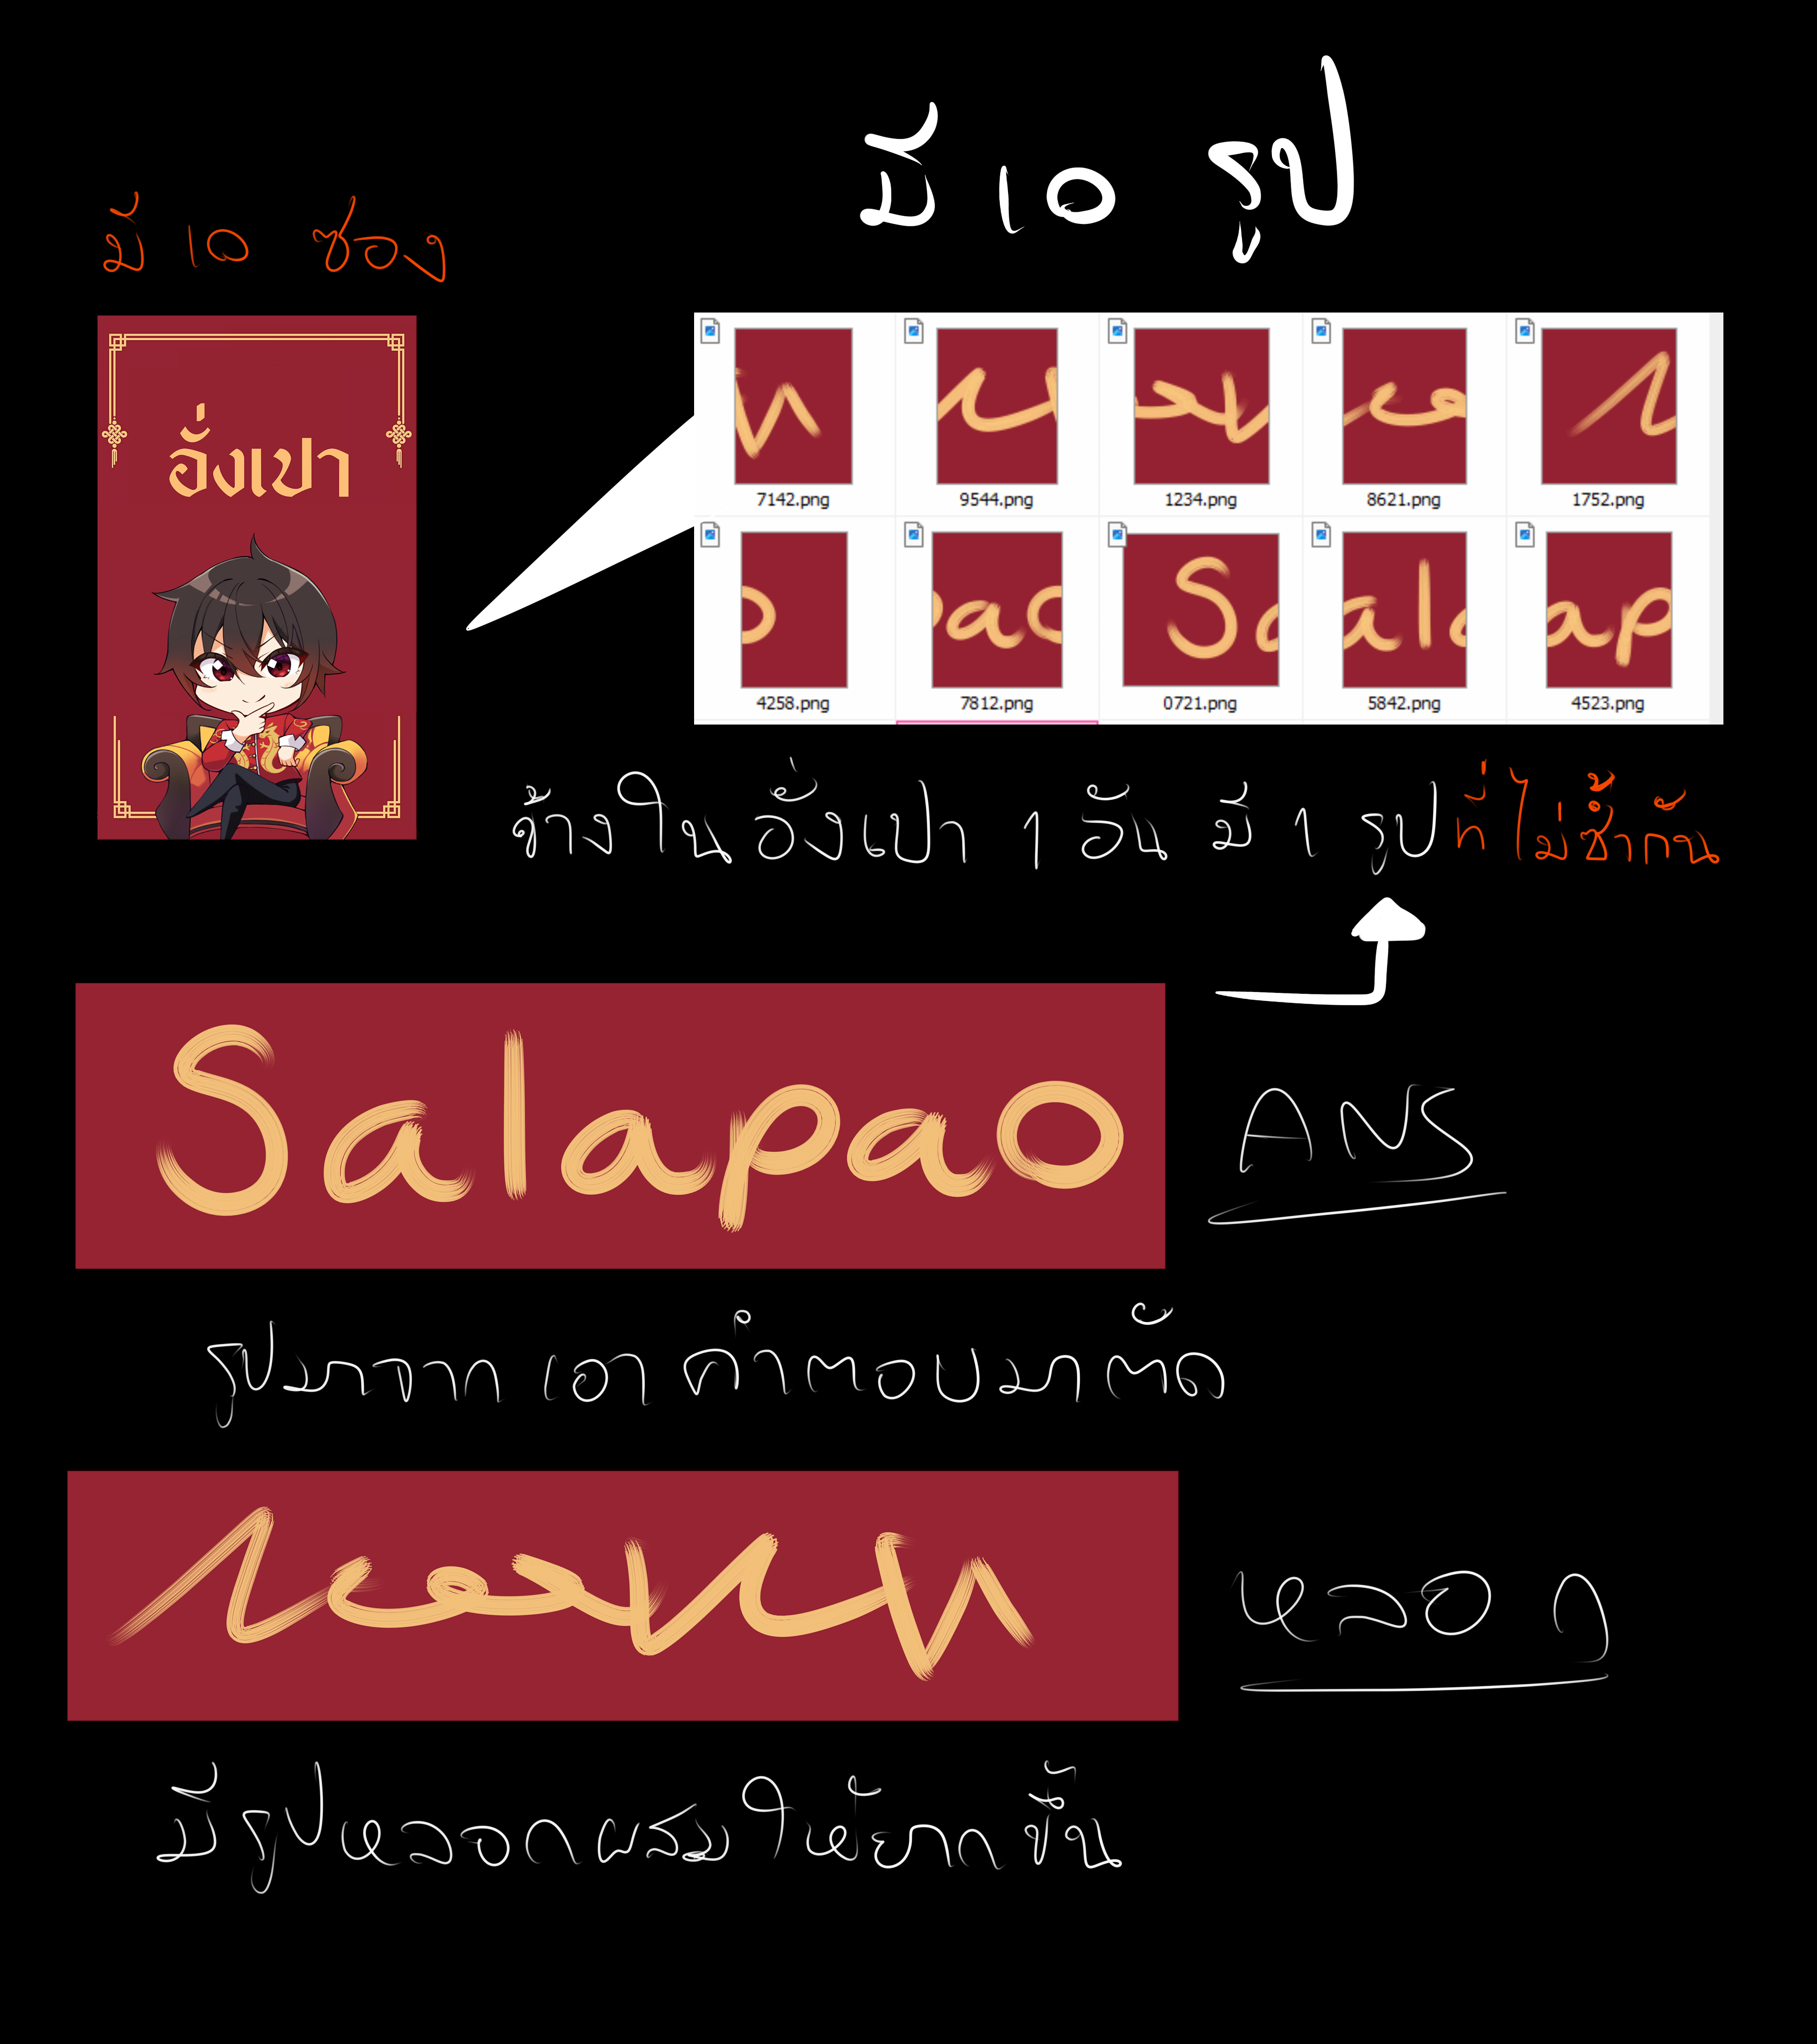 มี 10 รูป
มี 10 ซอง
อั่งเปา
7142.png 9544.png 1234.png 8621.png 1752.png
Sa al ap pao o
4258.png 7812.png 0721.png 5842.png 4523.png
ข้างใน อั่งเปา 1 อัน มี 1 รูปที่ไม่ซ้ำกัน
Salapao
ANS
รูปมาจาก เอาคำตอบมาตัด
หลอก
มีรูปหลอกผสมให้ยากขึ้น